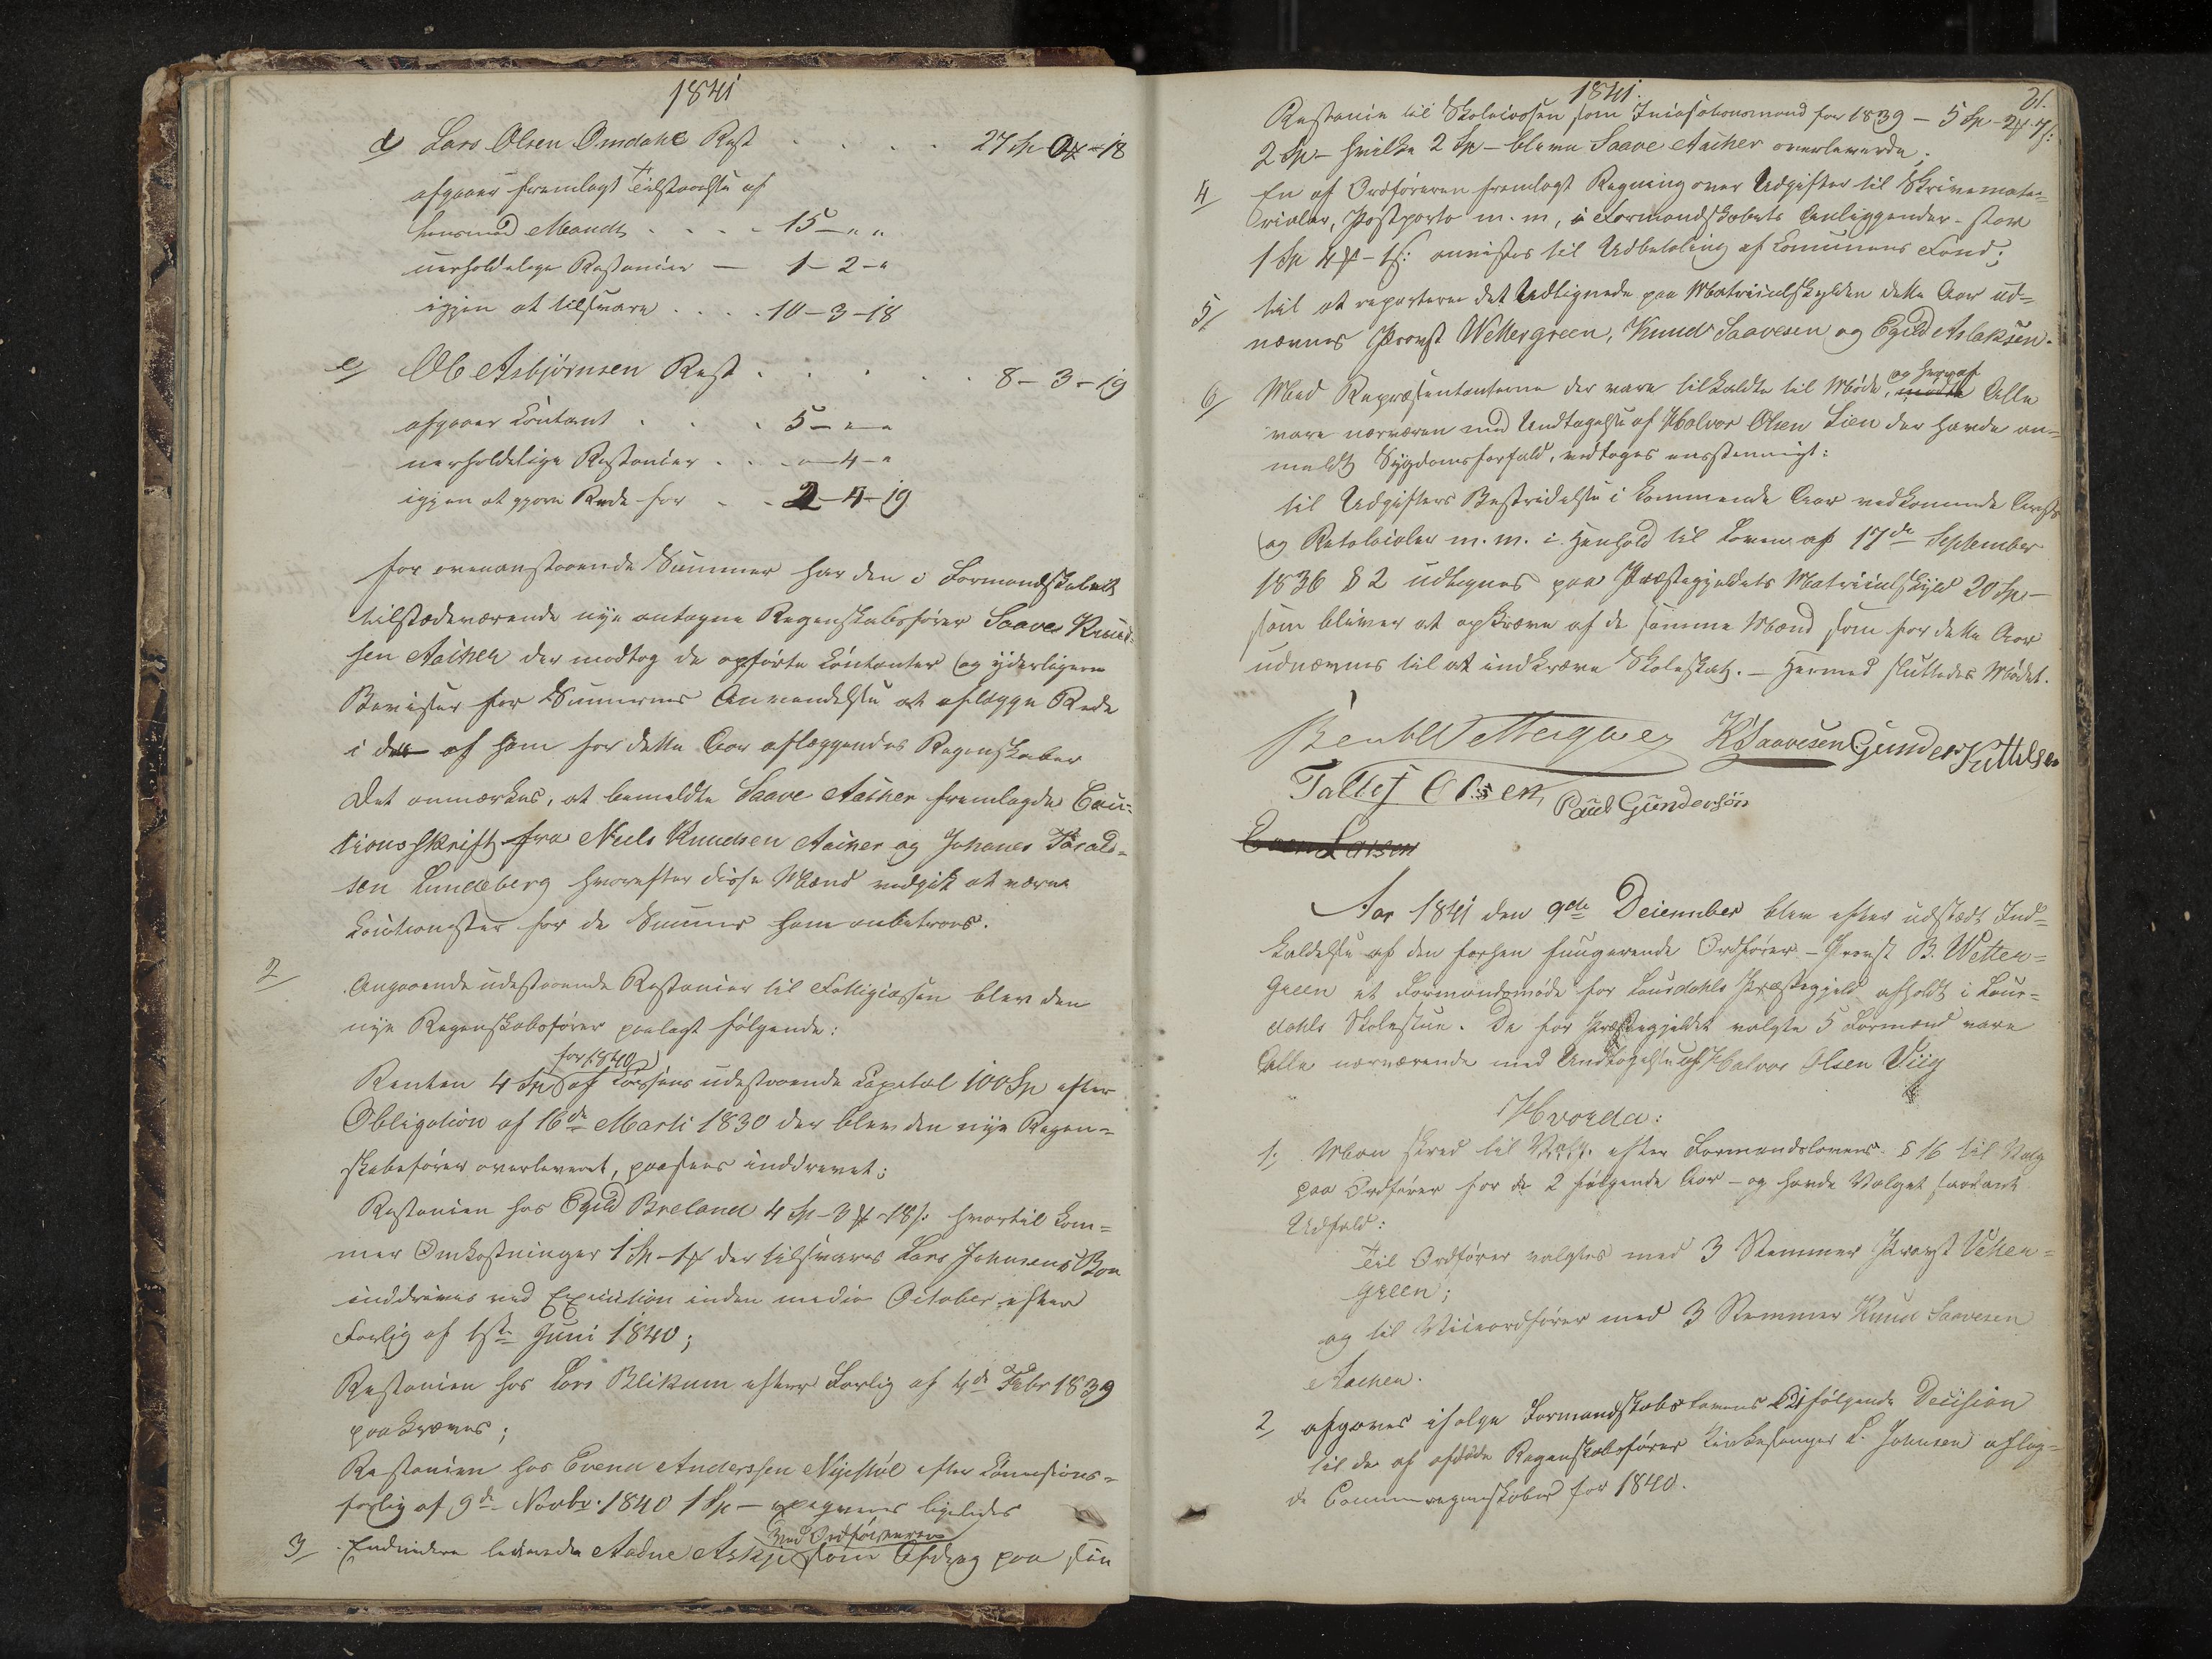 1841
d/ Lars Olsen Omdahl Rest . . . . . 27 Sp 0 # - 18
afgaaer fremlagt Tilstaaelse af
Lensmand Mandt . . . . 15 - " "
uerholdelige Restancer — 1 - 2 - "
igjen at tilsvare . . . . 10 - 3 - 18
e/ Ole Asbjørnsen Rest . . . . . . 8 - 3 - 19
afgaaer Contant . . . 5 - " - "
uerholdelige Restancer . . " - 4 - "
igjen at gjøre Rede for . . 2 - 4 - 19
for ovenanstaaende Summer har den i Formandskabet
tilstædeværende nye antagne Regenskabsfører Saave Knud-
sen Aaiher der modtog de opførte Contanter og yderligere
Beviser for Summernes Anvendelse at aflægge Rede
i de af ham for dette Aar aflæggendes Regenskaber
Det anmærkes, at bemeldte Saave Aaiher fremlagde Cau-
tionsskrift fra Niels Knudsen Aaiher og Johanes Tarald-
sen Lundeberg hvorefter disse Mænd vedgik at være
Cautionister for de Summer ham anbetroes.
2/ Angaaende udestaaende Restancer til Fattigcassen blev den
nye Regenskabsfører paalagt følgende:
for 1840
Renten 4 Sp af Cassens udestaaende Capital 100 Sp efter
Obligation af 16de Marti 1830 der blev den nye Regen-
skabsfører overleveret, paasees inddrevet;
Restancen hos Egild Breland 4 Sp - 3 # - 18 s: hvortil kom-
mer Omkostninger 1 Sp - 1 # der tilsvares Lars Johnsens Boe
inddrives ved Execution inden medio October efter
Forlig af 1ste Juni 1840;
Restancen hos Lars Blikum efter Forlig af 4de Febr 1839
paakræves;
Restancen hos Evend Anderssen Nyestøl efter Comissions-
forlig af 9de Novbr. 1840 1 Sp — ligeledes
3/ Endvidere leverede Aadne Askje som Afdrag paa sin
ved Ordføreren
1841.
31.
Restance til Skolecassen som Inciationsmand for 1839 — 5 Sp - 2 # - 7 s:
2 Sp — hvilke 2 Sp — bleve Saave Aaiher overleverede;
4/ En af Ordføreren fremlagt Regning over Udgifter til Skrivemate-
rialer, Postporto m. m, i Formandskabets Anliggender — stor
1 Sp 4 # - 1 s: anvistes til Udbetaling af Comunens Fond;
5/ til at repartere det Udlignede paa Matriculskylden dette Aar ud-
nævnes Provst Wettergreen, Knud Saavesen og Egild Aslaksen.
6/ Med Repræsentanterne der vare tilkaldte til Møde, og hvoraf Alle
vare nærværen med Undtagelse af Halvor Olsen Lien der havde an-
meldt Sygdomsforfald, vedtoges eenstemmigt:
til Udgifters Bestridelse i kommende Aar vedkomende
og m. m. i Henhold til Loven af 17de September
1836 § 2 udlignes paa Præstegjeldets Matriculskyld 20 Sp —
som bliver at opkræve af de samme Mænd som for dette Aar
udnævnes til at indkræve Skoleskat. — Hermed sluttedes Mødet.
Bent Wettergreen KSaavesen Gunder Kittilsen
Tallef Olsen Paul Gundersön
Even Larsen
Aar 1841 den 9de Deicember blev efter udstædt Ind-
kaldelse af den forhen fungerende Ordfører — Provst B. Wetter-
green et Formandsmøde for Laurdahls Præstegjeld afholdt i Laur-
dahls Skolestue. De for Præstegjeldet valgte 5 Formænd vare
Alle nærværende med Undtagelse af Halvor Olsen Viig
Hvorda:
1; Man skred til efter Formandslovens § 16 til Valg
paa Ordfører for de 2 følgende Aar — og havde Valget saadant
Udfald:
Til Ordfører valgtes med 3 Stemmer Provst Vetter-
green;
og til Viceordfører med 3 Stemmer Knud Saavesen
Aachen.
2/ afgaves ifølge Formandskabslovens følgende Decision
til de af afdøde Regenskabsfører Kirkesanger L. Johnsen aflag-
de Commune regenskaber for 1840.